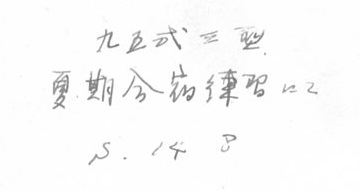 九五式三型
夏期合宿練習にて
S. 14 8